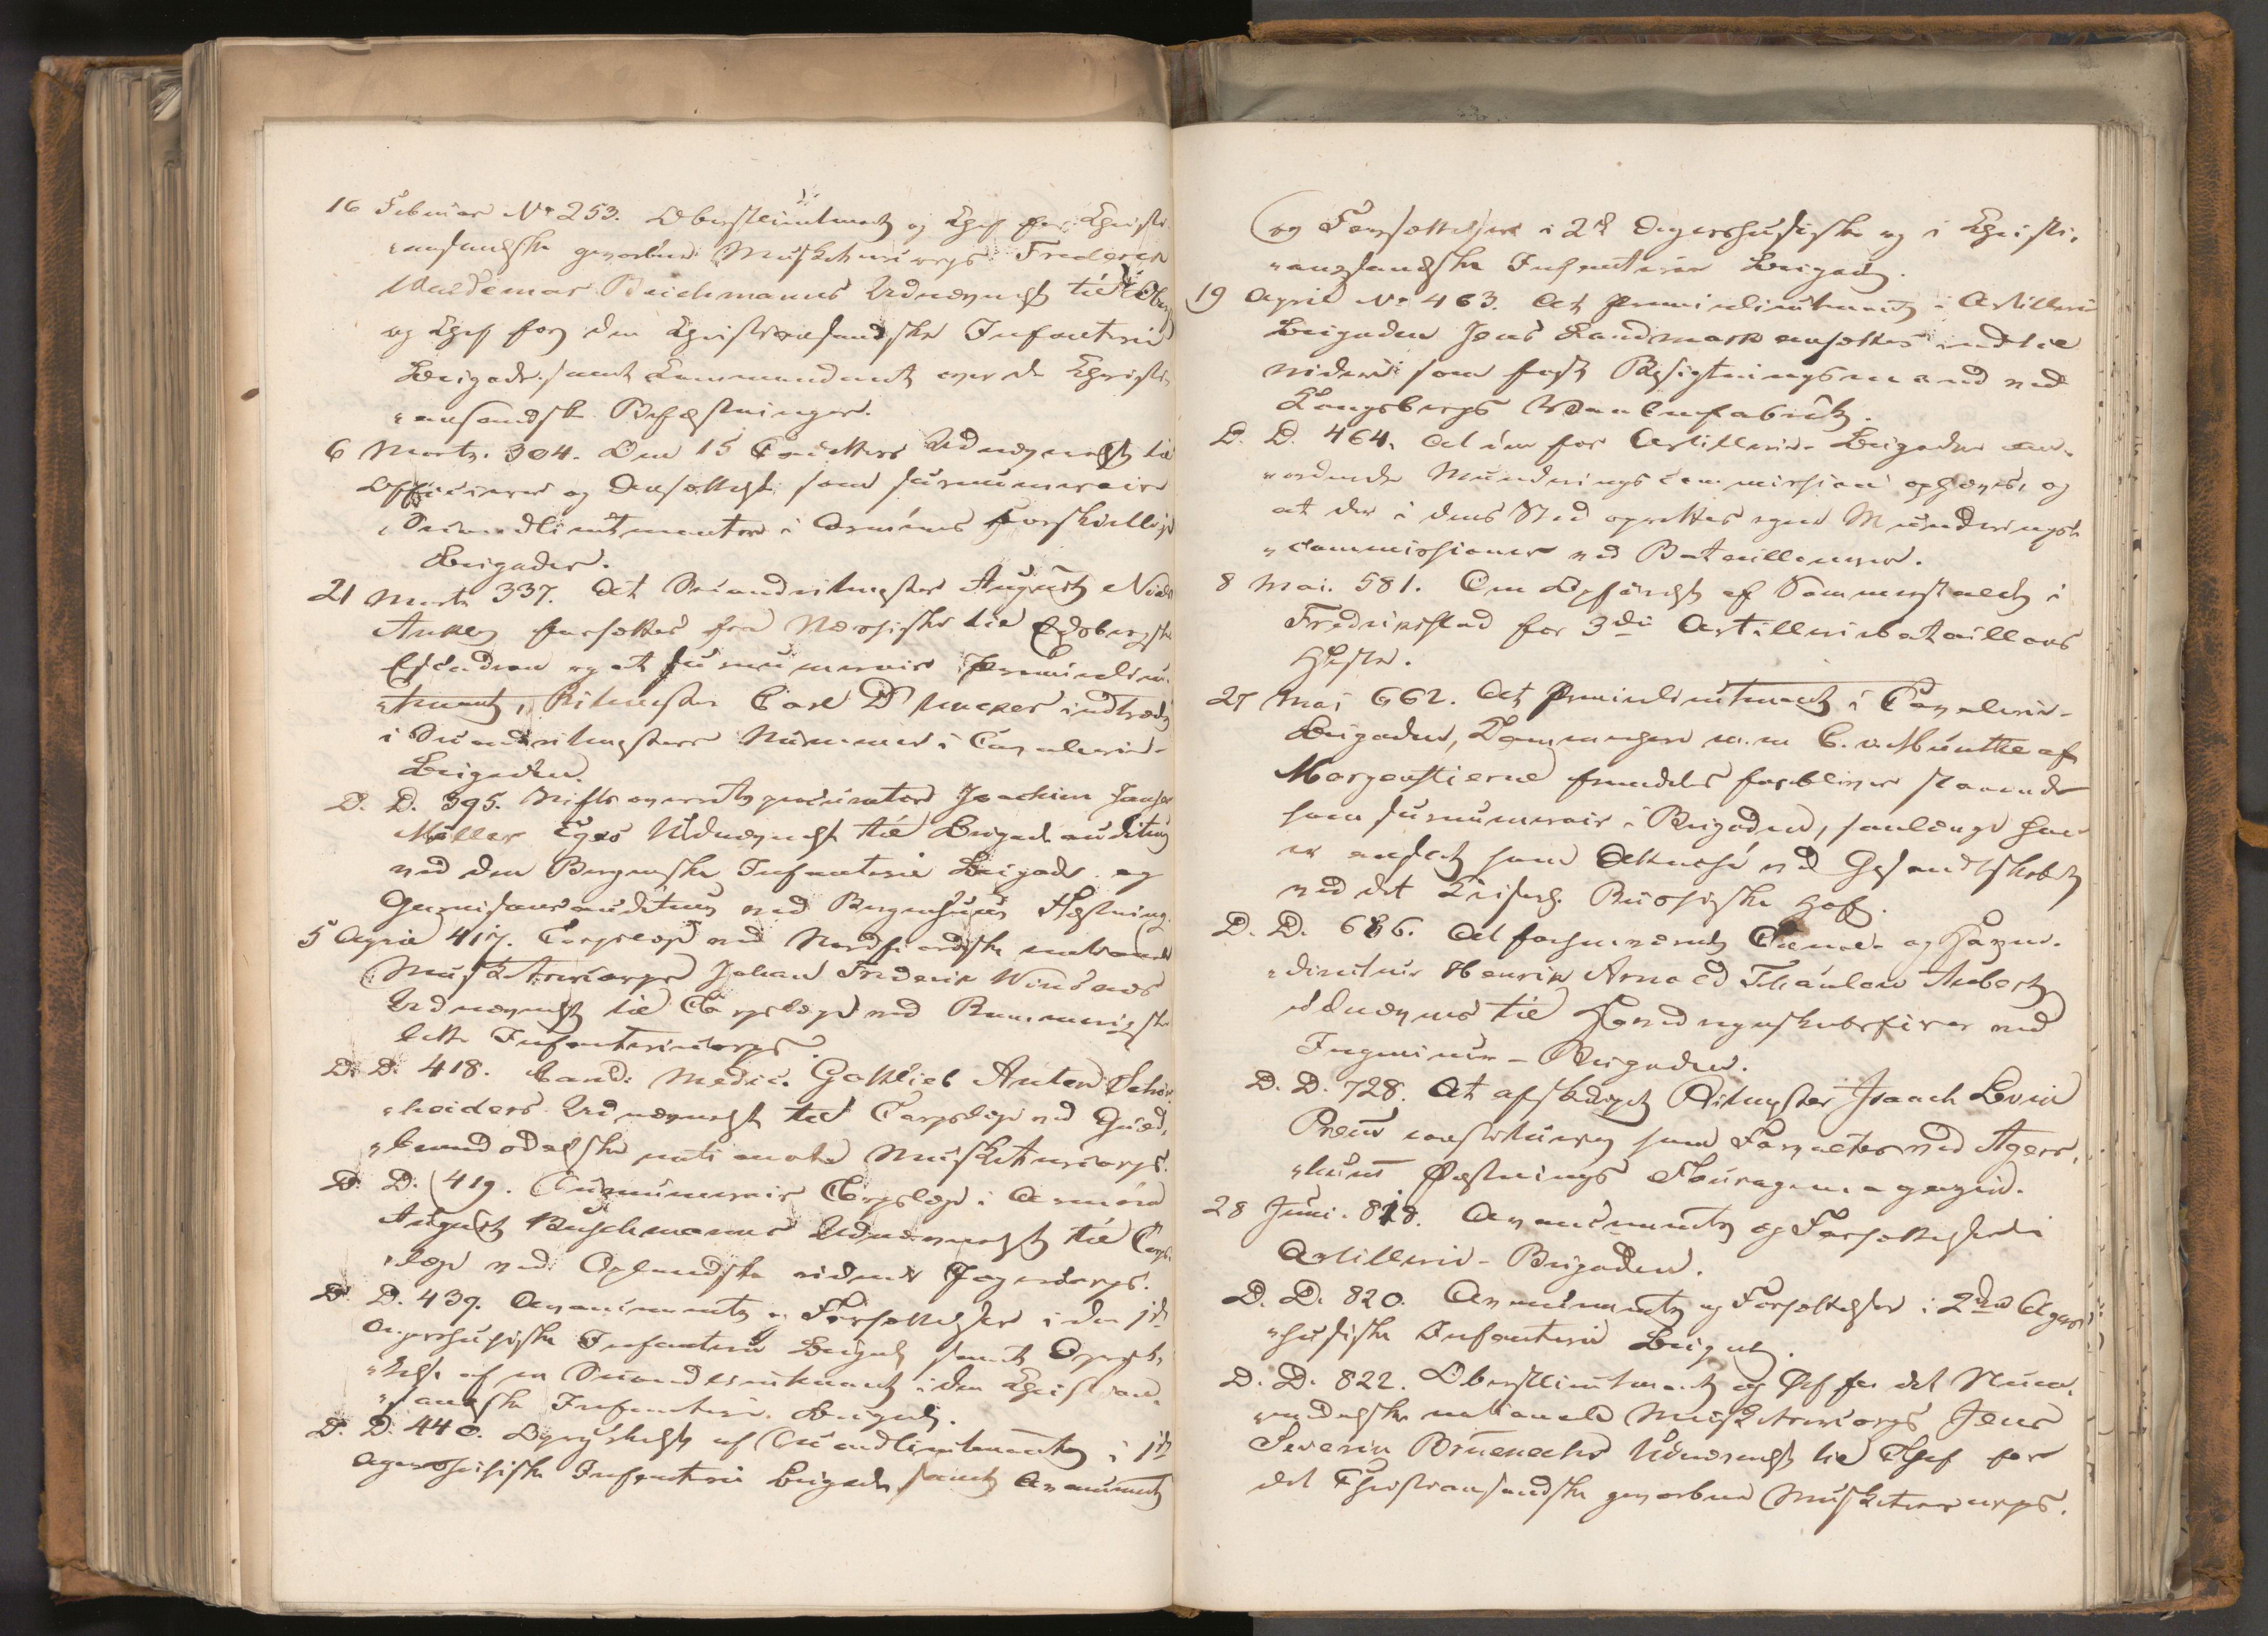 16 Februar No 253. Oberstlieutnant og Chef for Christi-
"ansandske gevorbne Musketeercorps Frederik
Waldemar Beichmanns Udnævnelse til Oberst
og Chef for den Christiansandske Infanterie
Brigade, samt Commandant over de Christi-
"ansandske Befæstninger.
6 Marts. 304. Om 15 Cadetters Udnævnelse til
Officierer og Ansættelse som surnumeraire
Secondlieutenanter i Arméens forskiellige
Brigader.
21 Marts 337. At Secondritmester August Nicolai
Anker forsættes fra Næssiske til
Escadron og at surnumerair Premierlieu-
"tenant, Ritmester Carl indtræder
i Secondritmesters Nummer i Cavalerie-
Brigaden.
D. D. 395. Stiftsoverretsprocurator Joachim
Møller Udnævnelse til Brigadeauditeur
ved den Bergenske Infanterie Brigade og
Garnisonsauditeur ved Bergenhuus Fæstning.
5 April 417. Corpslæge ved Nordfiordske nationale
Musketeercorps Johan Frederik
Udnævnelse til Corpslæge ved
lette Infanteriecorps.
D. D. 418. Cand: Medic. Gottlieb Anton
"heiders Udnævnelse til Corpslæge ved Gud-
"brandsdalske nationale Musketeercorps.
D. D. 419. Surnumerair Corpslæge i Arméen
August Buschmanns Udnævnelse til Corps-
"læge ved Oplandske ridende Jægercorps.
D. D. 439. Avancementer og Forsættelser i den 1ste
Agershusiske Infanterie Brigade samt
"else af en Secondlieutenant i den Christian-
"sandske Infanterie Brigade.
D. D. 440. af Secondlieutenanter i 1ste
Agershusiske Infanterie Brigade samt Avancement
og Forsættelser i 2den Agershusiske og i Christi-
"anssandske Infanterie Brigade.
19 April No 463. At Premierlieutenant i Artillerie
Brigaden Jens Landmark ansættes indtil
videre som fast Besigtningsmand ved
Kongsbergs Vaabenfabrik.
D. D. 464. At den for Artillerie-Brigaden an-
"ordnede Munderingscommission ophæves, og
at der i dens Sted oprettes egne Munderings-
"commissioner ved Bataillonerne.
8 Mai. 581. Om Opførelse af i
Fredriksstad for 3die Artilleriebataillons
Heste.
27 Mai 662. At Premierlieutenant i Cavalerie-
Brigaden, Kammerherre m.m C. v. Munthe af
Morgenstierne fremdeles forbliver staaende
som surnumerair i Brigaden, saalænge han
er ansat som Attaché ved Gesandtskabet
ved det Keiserl. Russiske Hof.
D. D. 686. At forhenværende Canal- og Havne-
"directeur Henrik Arnold Thaulow Aubert
udnævnes til ved
Ingenieur-Brigaden.
D. D. 728. At afskediget Ritmester Isaach Levin
constitueres som Forvalter ved Agers-
"huus Fæstnings Fouragemagazin.
28 Juni. 818. Avancementer og Forsættelser i
Artillerie-Brigaden.
D. D. 820. Avancementer og Forsættelser i 2den Agers-
"husiske Infanterie Brigade.
D. D. 822. Oberstlieutenant og Chef for det Num-
"medalske nationale Musketeercorps Jens
Severin Udnævnelse til Chef for
det Christiansandske gevorbne Musketeercorps.